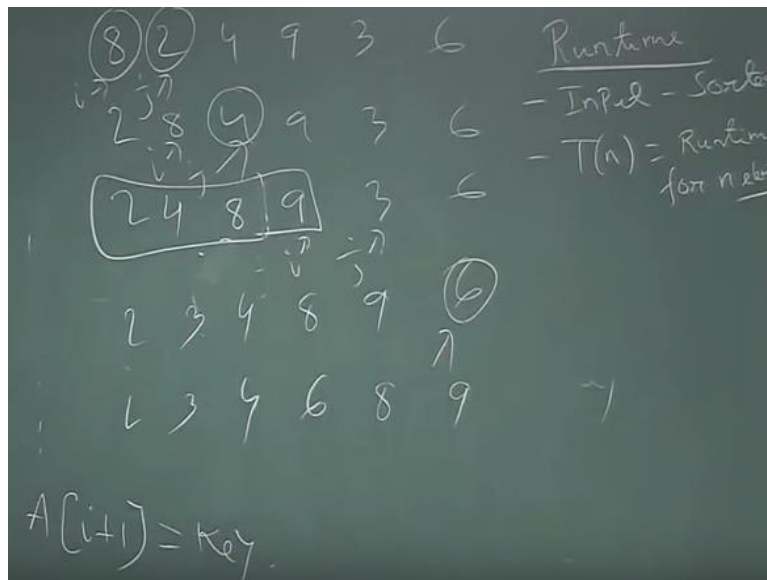 8 2 4 9 3 6
i j
2 8 4 9 3 6
i j
2 4 8 9 3 6
i j
2 3 4 8 9 6
2 3 4 6 8 9
A[i+1] = Key.
Runtime
- Input - Sorte
- T(n) = Runtim
for n